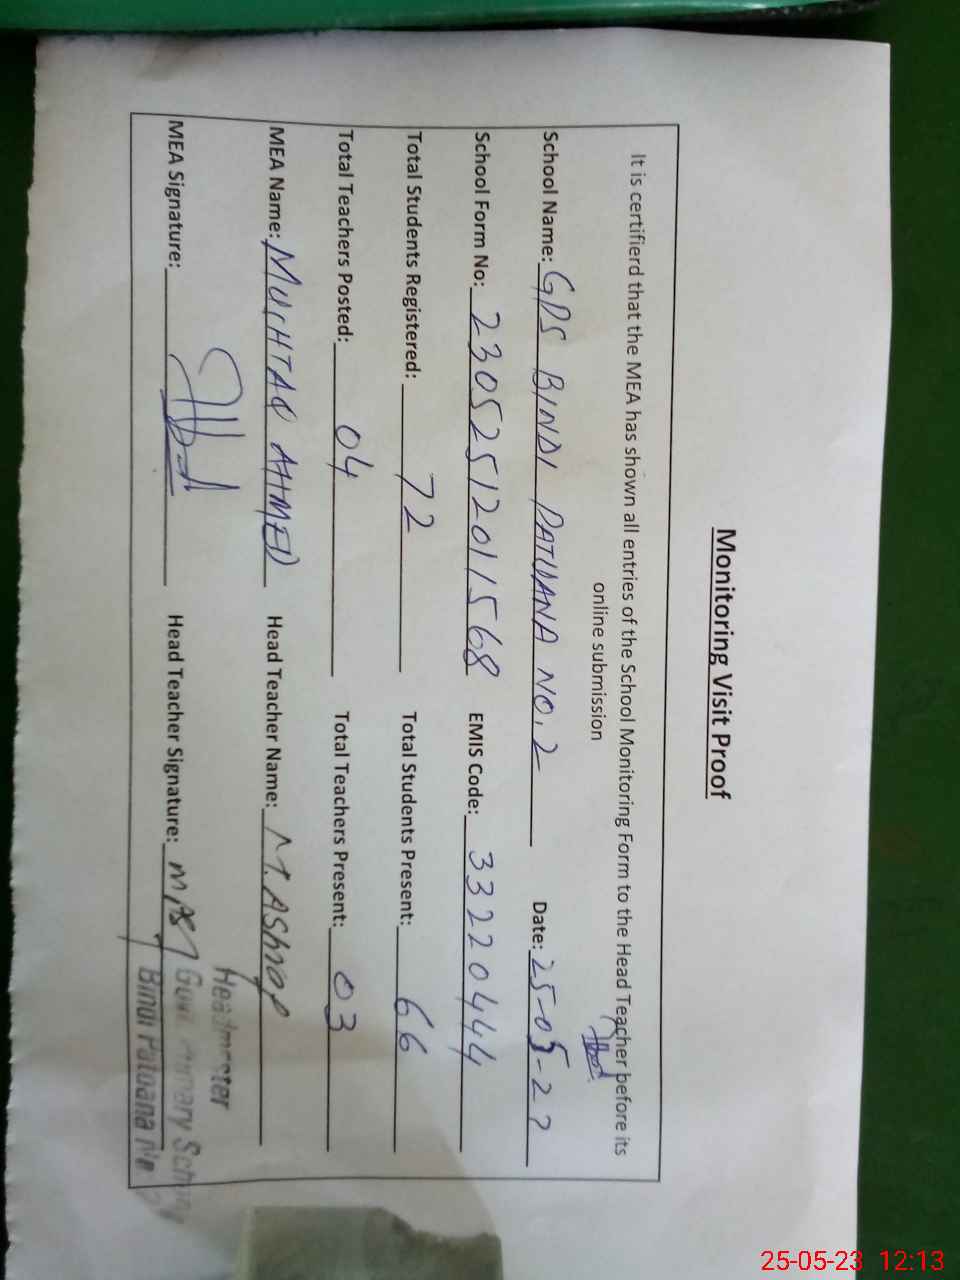 Monitoring Visit Proof
It is certifierd that the MEA has shown all entries of the School Monitoring Form to the Head Teacher before its
online submission
School Name: GPS BINDI PATUANA NO. 2 Date: 25-05-23
School Form No: 230525120 11568 EMIS Code: 33220444
Total Students Registered: 72 Total Students Present: 66
Total Teachers Posted: 04 Total Teachers Present: 03
MEA Name: MUSHTAQ AHMED Head Teacher Name: M. AShraf
MEA Signature: Head Teacher Signature:
Headmaster
Govt. Primary School
Bindi Patuana No
25-05-23 12:13